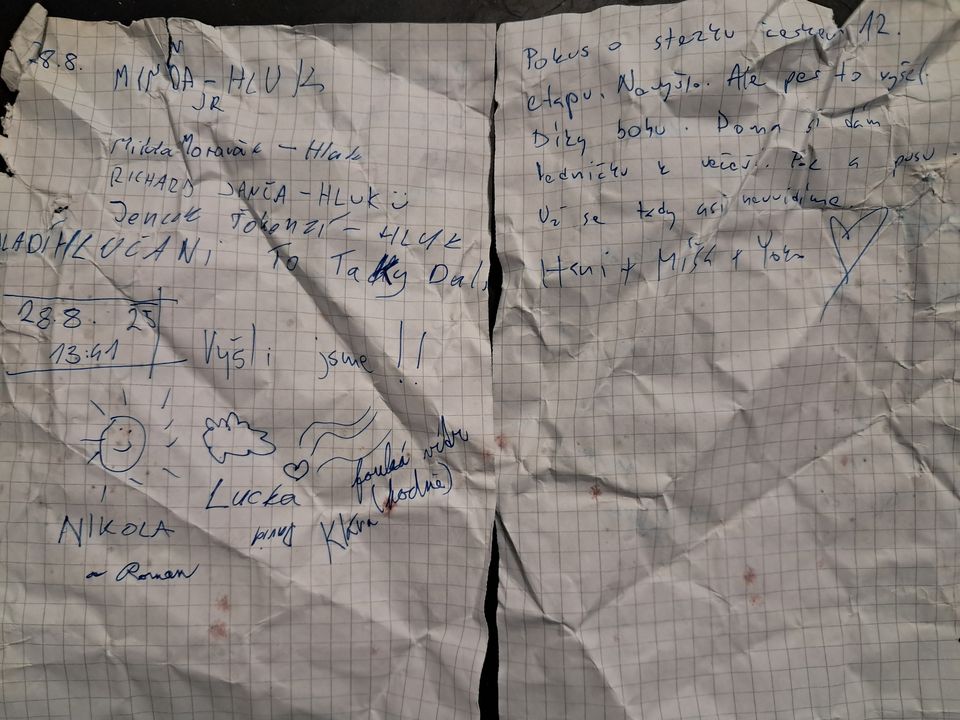 28.8.
MINĎA - HLUK
JR
Mikla Moravák - Hluk
RICHARD JANČA - HLUK
Jencek - HLUK
MLADÍ HLUČANI TO TAKY DALi
28.8. 25
13:41
Vyšli jsme !!
fouká vítr
(hodně)
Lucka
NIKOLA
David
Klára
~ Roman
Pokus o stezku českem 12.
etapu. Nevyšlo. Ale pes to vyšel.
Díky bohu. Doma si dám
ledničku k večeři. Pac a pusu.
Už se tady asi neuvidíme.
Hani + Míša +